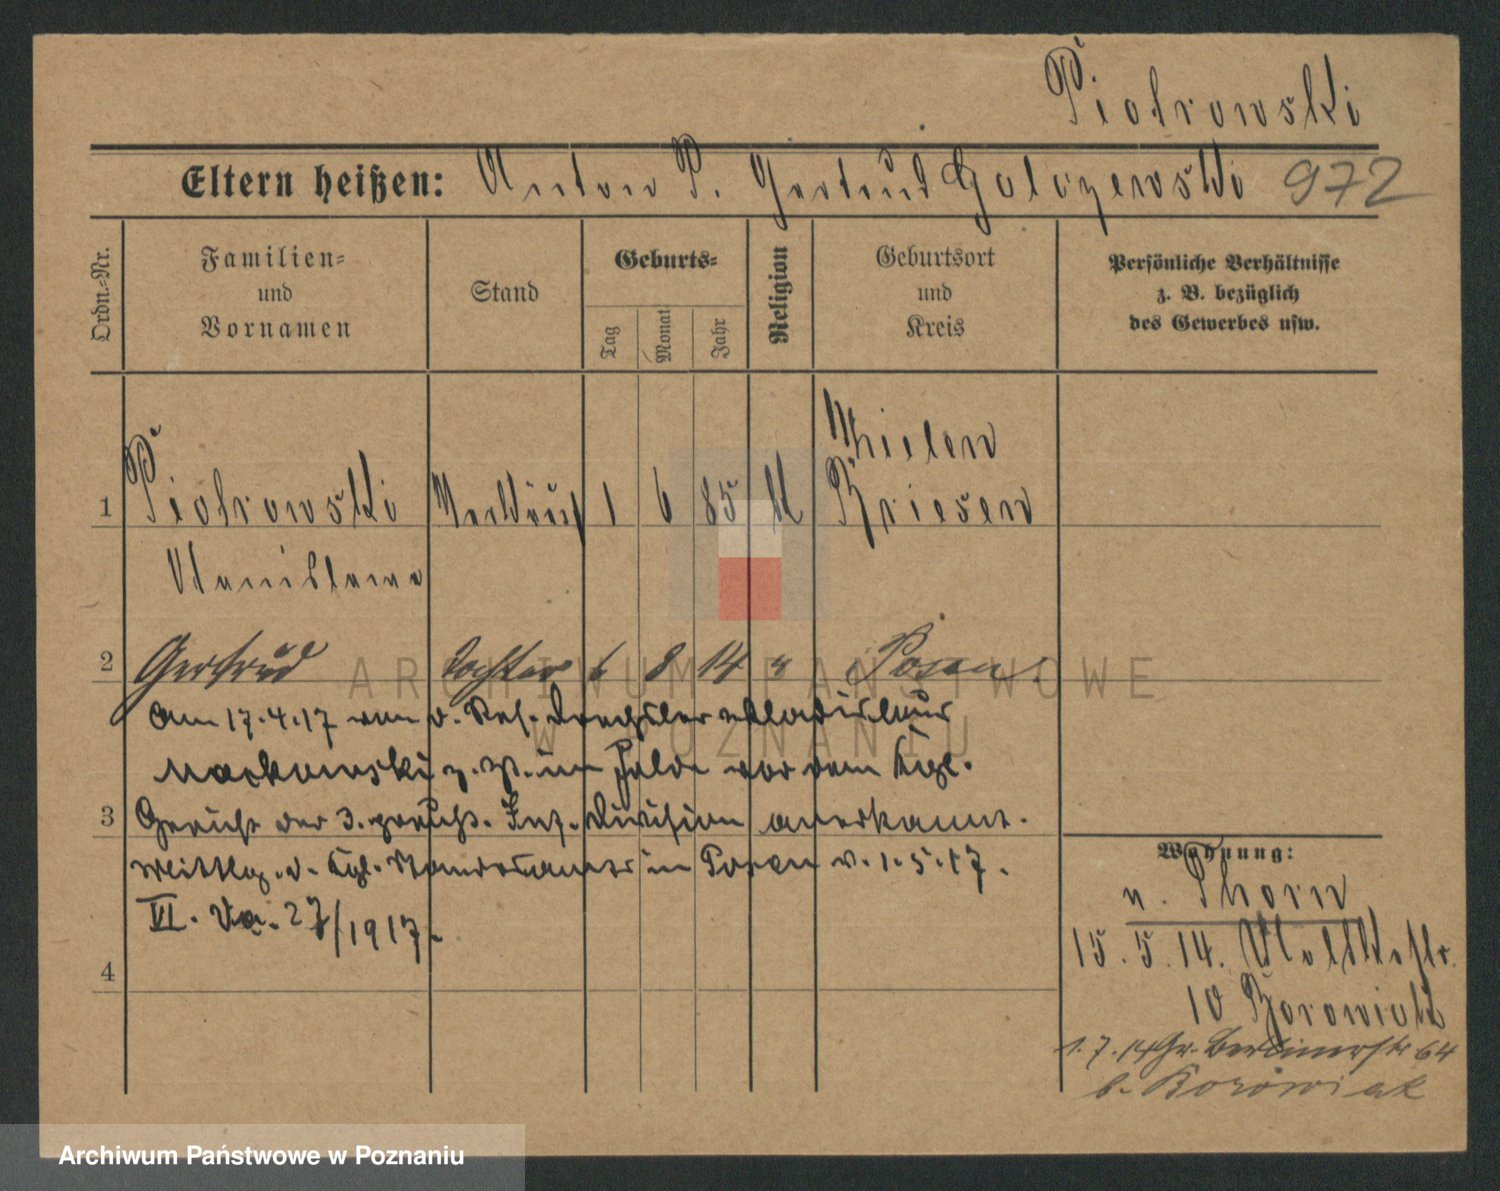 Piotrowski
Eltern heißen: Anton P. Gertrud Golczewski 972
Ordn.-Nr.
Familien-
und
Vornamen
Stand
Geburts-
Tag
Monat
Jahr
Religion
Geburtsort
und
Kreis
Persönliche Verhältnisse
z. B. bezüglich
des Gewerbes usw.
Mielen
1 Piotrowski Verkäuf 1 6 85 kl Briesen
Stanislawa
2 Gertrud Tochter 6 8 14 " Posen.
Am 17.4.17 von d. Res. Drechsler Wladislaus
Maćkowski z. Zt. im Felde vor dem Kgl.
3 Gericht der 3. preuß. Inf. Division anerkannt.
Mittlg. d. Kgl. Standesamts in Posen v. 1.5.17.
VI. Va. 27/1917.
4
Wohnung:
v. Thorn
15. 5. 14.
10 Borowiak
1. 7. 14 Gr. Berlinerstr 64
b. Borowiak
ARCHIWUM PAŃSTWOWE
W POZNANIU
Archiwum Państwowe w Poznaniu